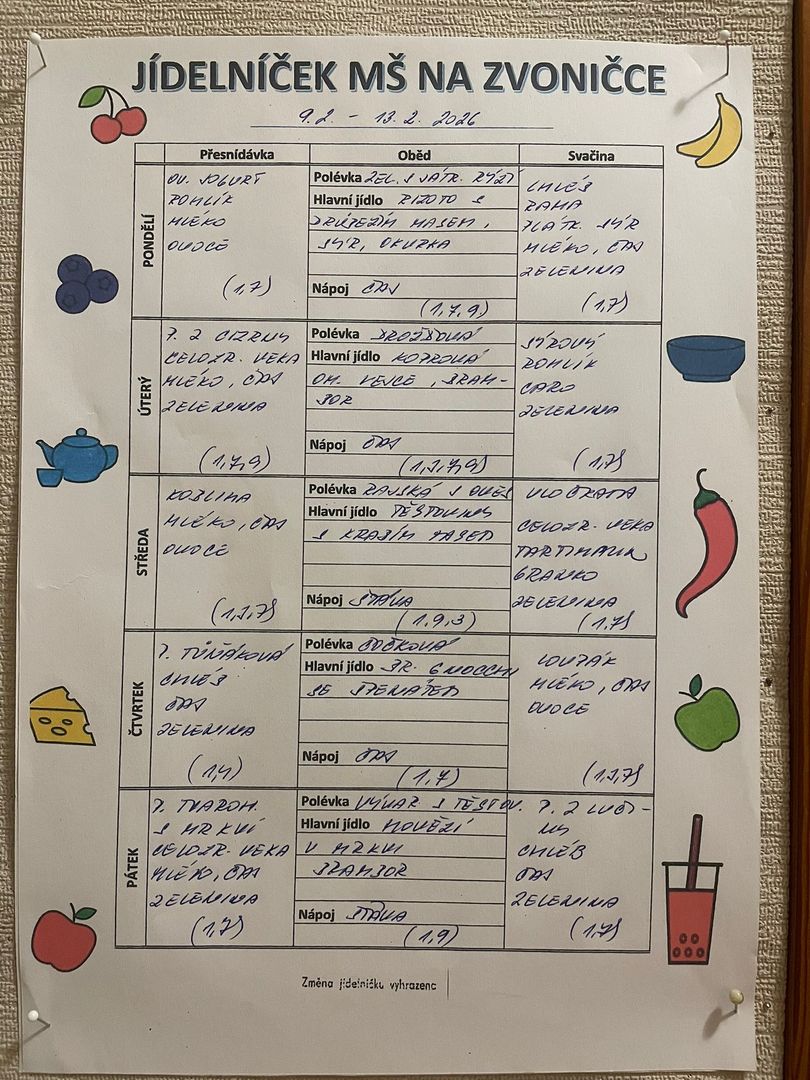 JÍDELNÍČEK MŠ NA ZVONIČCE
9.2. - 13.2. 2026
Přesnídávka
Oběd
Svačina
PONDĚLÍ
OV. JOGURT
ROHLÍK
MLÉKO
OVOCE
(1,7)
Polévka ZEL. S JÁTR. RÝŽÍ
Hlavní jídlo RIZOTO S
DRŮBEŽÍM MASEM,
SÝR, OKURKA
Nápoj ČAJ
(1,7,9)
CHLÉB
RAMA
PLÁTK. SÝR
MLÉKO, ČAJ
ZELENINA
(1,7)
ÚTERÝ
P. Z CIZRNY
CELOZR. VEKA
MLÉKO, ČAJ
ZELENINA
(1,7,9)
Polévka DROŽĎOVÁ
Hlavní jídlo KOPROVÁ
OM. VEJCE, BRAM-
BOR
Nápoj ČAJ
(1,3,7,9)
SÝROVÝ
ROHLÍK
CARO
ZELENINA
(1,7)
STŘEDA
KOBLIHA
MLÉKO, ČAJ
OVOCE
(1,3,7)
Polévka RAJSKÁ S OVES
VLOČKAMA
Hlavní jídlo TĚSTOVINY
S KRABÍM MASEM
Nápoj ŠŤÁVA
(1,9,3)
CELOZR. VEKA
GRANKO
ZELENINA
(1,7)
ČTVRTEK
P. TUŇÁKOVÁ
CHLÉB
ČAJ
ZELENINA
(1,4)
Polévka ČOČKOVÁ
Hlavní jídlo BR. GNOCCHI
SE ŠPENÁTEM
Nápoj ČAJ
(1,7)
LOUPÁK
MLÉKO, ČAJ
OVOCE
(1,3,7)
PÁTEK
P. TVAROH.
S MRKVÍ
CELOZR. VEKA
MLÉKO, ČAJ
ZELENINA
(1,7)
Polévka VÝVAR S TĚSTOV.
Hlavní jídlo HOVĚZÍ
V MRKVI
BRAMBOR
Nápoj ŠŤÁVA
(1,9)
P. Z LUČI-
NY
CHLÉB
ČAJ
ZELENINA
(1,7)
Změna jídelníčku vyhrazena